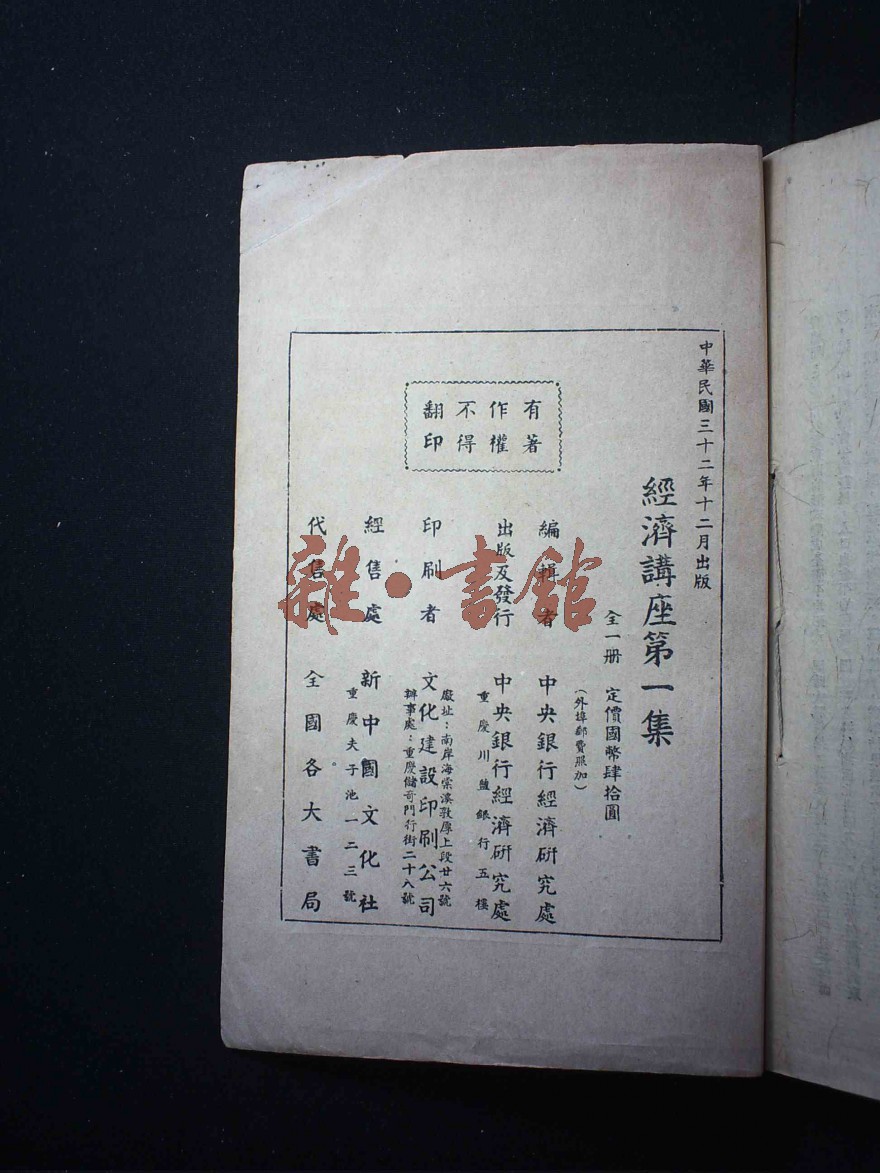 中華民國三十二年十二月出版
經濟講座第一集
全一册 定價國幣肆拾圓
（外埠郵費照加）
有著作權不得翻印
編輯者 中央銀行經濟研究處
出版及發行 中央銀行經濟研究處
重慶川鹽銀行五樓
印刷者 文化建設印刷公司
廠址：南岸海棠溪敦厚上段廿六號
辦事處：重慶儲奇門行街二十八號
經售處 新中國文化社
重慶夫子池一二三號
代售處 全國各大書局
雜·書館